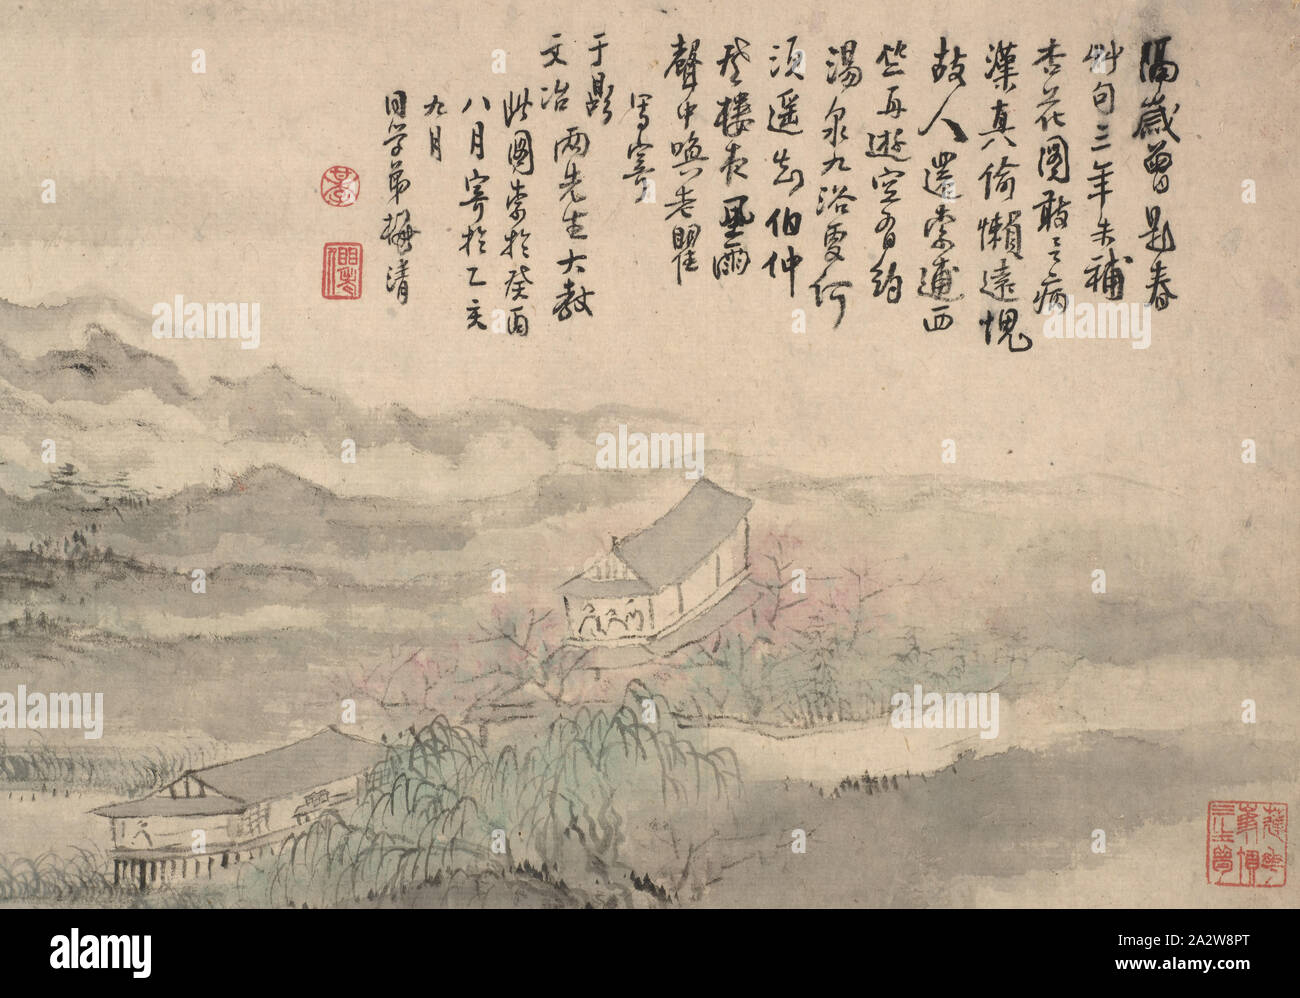 隔歲曾是春
艸句三年未補
杏花圖敢云病
漢真偷懶遠愧
故人還索逋西
竺再遊定有約
湯泉九浴更何
須遥知伯仲
登樓夜風雨
聲中喚老瞿
寫寄
于鼎
文冶兩先生大教
此圖索於癸酉
八月寄於乙亥
九月
同學弟梅清
alamy
alamy
alamy
alamy
Image ID: 2A2W8PT
www.alamy.com